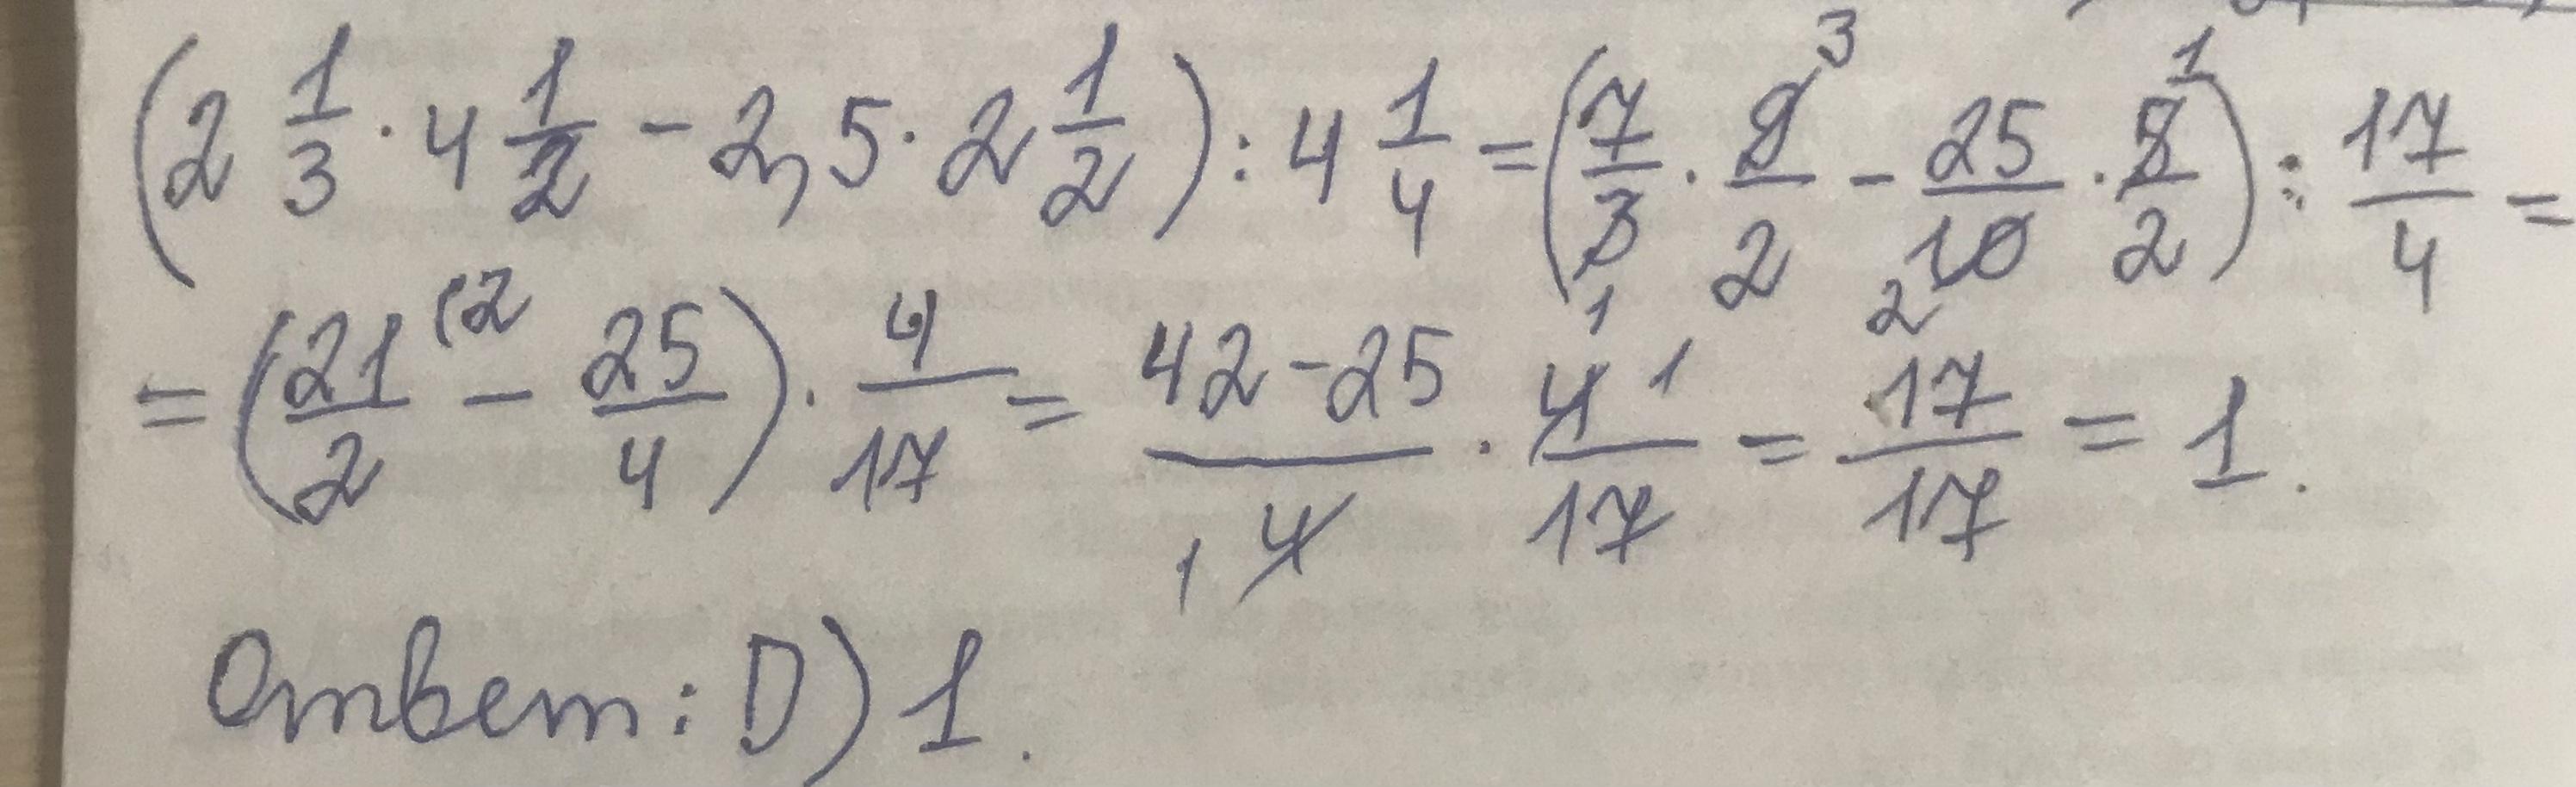 (2 1/3 · 4 1/2 - 2,5 · 2 1/2) : 4 1/4 = (7/3 · 9/2 - 25/10 · 5/2) : 17/4 =
= (21/2 - 25/4) · 4/17 = (42-25)/4 · 4/17 = 17/17 = 1.
Ответ: D) 1.